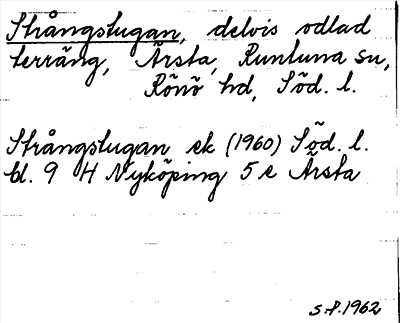 Strångstugan, delvis odlad
terräng, Årsta, Runtuna sn,
Rönö hd, Söd. l.
Strångstugan ek (1960) Söd. l.
bl. 9 H Nyköping 5 e Årsta
S.P. 1962